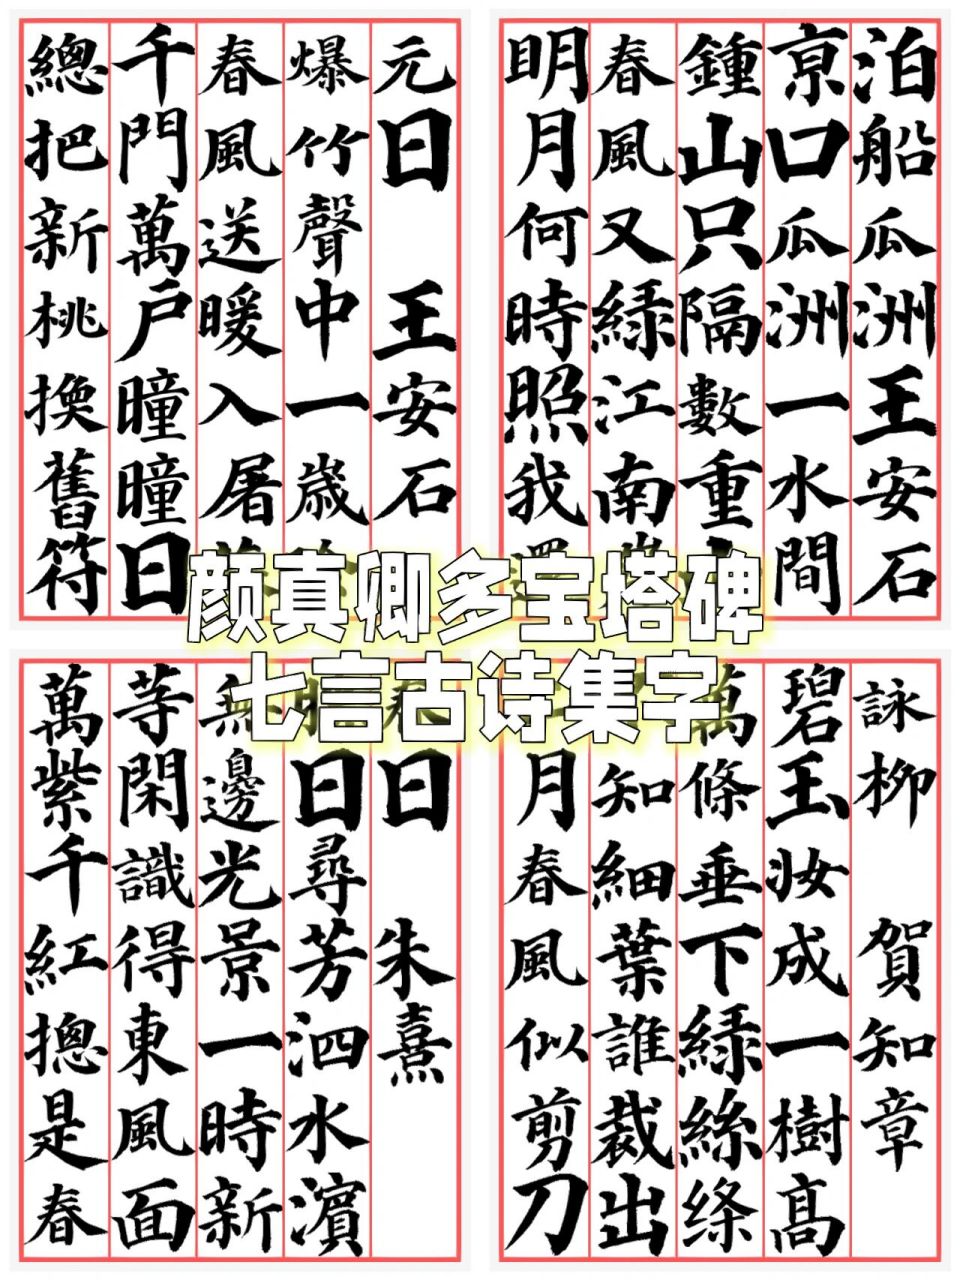 元日 王安石
爆竹聲中一歲
春風送暖入屠
千門萬户曈曈日
總把新桃換舊符
泊船瓜洲王安石
京口瓜洲一水間
鍾山只隔數重
春風又緑江南
明月何時照我
颜真卿多宝塔碑
七言古诗集字
日 朱熹
日尋芳泗水濱
無邊光景一時新
等閑識得東風面
萬紫千紅摠是春
詠柳 賀知章
碧玉妆成一樹髙
萬條垂下緑絲絛
知細葉誰裁出
月春風似剪刀